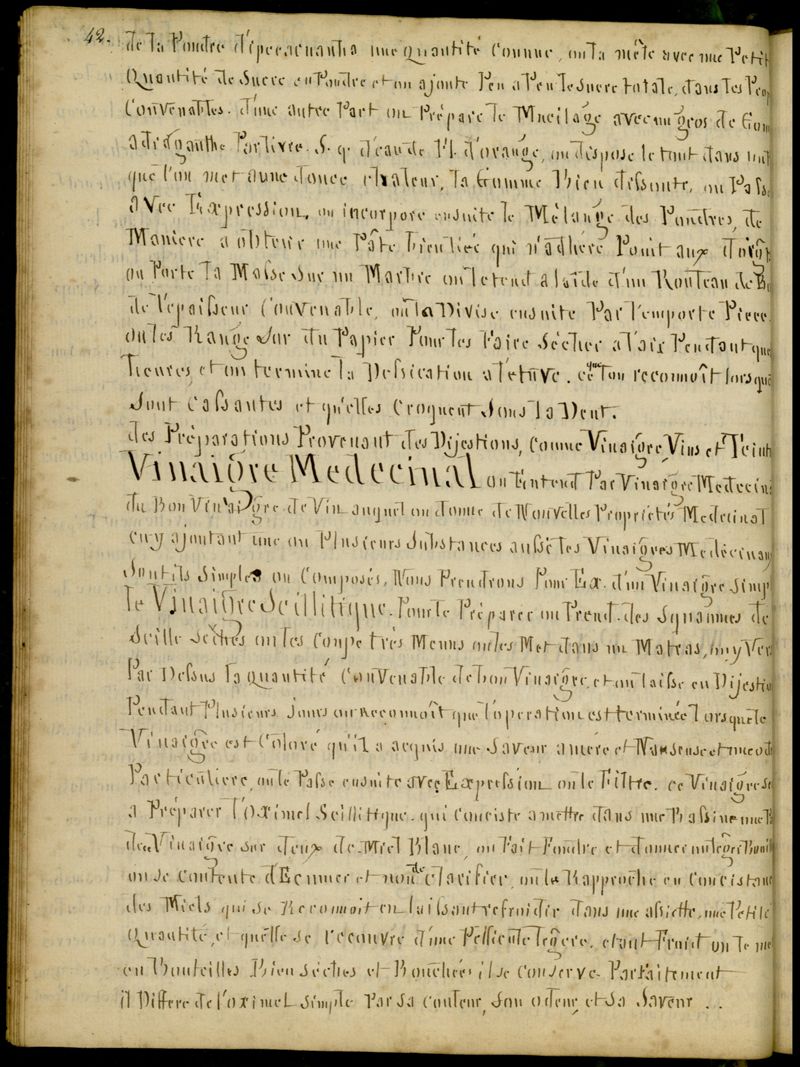 42.
de la Poudre d'ipecacuanha une quantité Connue, on la mêle avec une Petit
Quantité de Sucre en Poudre et on ajoute Peu a Peu le Sucre totale, dans les Prop
Convenables. d'une autre Part on Prépare le Mucilage avec un gros de Gom
adraganthe Par livre. S. q. d'eau de fl. d'orange, on dispose le tout dans un
que l'on met a une douce chaleur, la Gomme Bien dissoute, on Passe
avec Expression, on incorpore ensuite le Mélange des Poudres, de
Maniere a obtenir une Pâte Bien liée qui n'adhère Point aux doigts
on Porte la Masse Sur un Marbre on l'etend a l'aide d'un Rouleau de Bo
de l'epaisseur Convenable, on la Divise ensuite Par l'emporte Piece.
on les Range Sur du Papier Pour les Faire Sécher a l'air Pendant que
heures et on termine la Dessication a l'etuve. ce que l'on reconnoît lorsque
Sont Cassantes et qu'elles Croquent Sous la Dent.
des Préparations Provenant des Dijestions, Comme Vinaigre Vins et Teint
Vinaigre Medecinal on Entend Par Vinaigre Medecin
du Bon Vinaigre de Vin auquel on donne de Nouvelles Proprietés Medecinal
en y ajoutant une ou Plusieurs Substances aussi les Vinaigres Medécinaux
Sont ils Simples ou Composés, Nous Prendrons Pour Ex. d'un Vinaigre Simp
le Vinaigre Scillitique. Pour le Préparer on Prend des Squammes de
Scille Séches on les Coupe très Menus on les Met dans un Matras, on y Ver
Par Dessus la quantité Convenable de bon Vinaigre, et on laisse en Dijestio
Pendant Plusieurs Jours on reconnoît que l'operation est terminée lorsque le
Vinaigre est Coloré qu'il a acquis une Saveur amère et Nauseuse et une od
Particuliere, on le Passe ensuite avec Expression on le Filtre. ce Vinaigre Se
a Préparer l'Oximel Scillitique. qui Conciste a mettre dans une Bassine une P
de Vinaigre Sur deux de Miel Blanc, on Fait Fondre et donner un leger Bouil
on Se Contente d'Ecumer et non de Clarifier, on le Rapproche en Concistance
des Miels qui Se Reconnoit en laissant refroidir dans une assiette, une Petite
Quantité, et qu'elle Se recouvre d'une Pellicule legere. etant Froid on le me
en Bouteilles Bien Séches et Bouchées il Se Conserve Parfaitement
il Differe de l'oximel Simple Par Sa Couleur, Son odeur et Sa Saveur ..